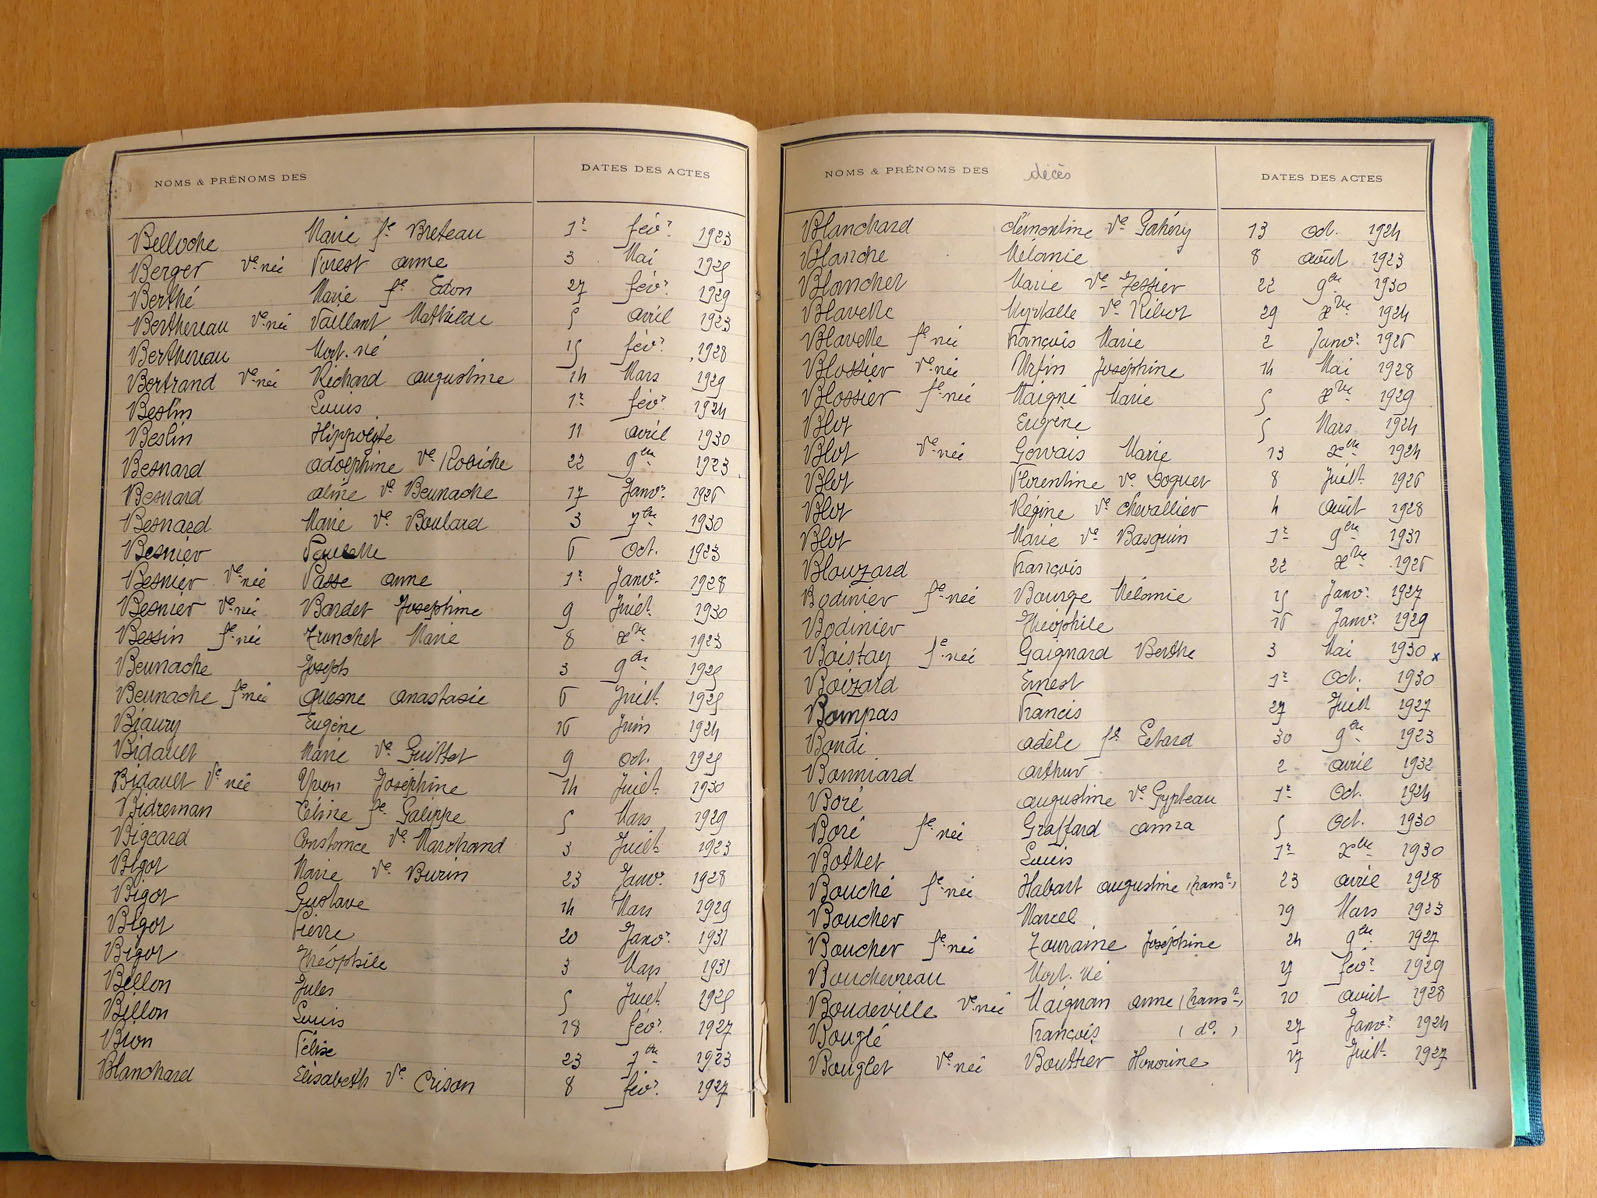 NOMS & PRÉNOMS DES DATES DES ACTES
Belloche Marie fe Breteau 1er févr 1923
Berger Ve née Forest anne 3 Mai 1925
Berthé Marie fe Edon 27 févr 1929
Berthereau Ve née Vaillant Mathilde 5 avril 1923
Berthereau Mort-né 15 févr 1928
Bertrand Ve née Richard augustine 14 Mars 1929
Beslin Louis 1er févr 1924
Beslin Hippolyte 11 avril 1930
Besnard adolphine Ve Robiche 22 9bre 1923
Besnard aline Ve Beunache 17 Janvr 1926
Besnard Marie Ve Boulard 3 7bre 1930
Besnier Paulette 6 Oct. 1923
Besnier Ve née Passe anne 1er Janvr 1928
Besnier Ve née Bardet Joséphine 9 Juillet 1930
Bessin fe née Tranchet Marie 8 Xbre 1923
Beunache Joseph 3 9bre 1925
Beunache fe née Quesne anastasie 6 Juillet 1925
Biaury Eugène 16 Juin 1924
Bidault Marie Ve Guittet 9 Oct. 1925
Bidault Ve née Yvon Joséphine 14 Juillet 1930
Bidreman Céline fe Galippe 5 Mars 1929
Bigeard Constance Ve Marchand 3 Juillet 1923
Bigot Marie Ve Burin 23 Janvr 1928
Bigot Gustave 14 Mars 1929
Bigot Pierre 20 Janvr 1931
Bigot Théophile 3 Mars 1931
Billon Jules 5 Juillet 1925
Billon Louis 18 févr 1927
Bion Félix 23 7bre 1923
Blanchard Elisabeth Ve Crison 8 févr 1927
NOMS & PRÉNOMS DES décès DATES DES ACTES
Blanchard Clémentine Ve Gahéry 13 Oct. 1924
Blanche Mélanie 8 août 1923
Blanchet Marie Ve Tessier 22 9bre 1930
Blavette Myrtalle Ve Ribot 29 Xbre 1924
Blavette fe née François Marie 2 Janvr 1926
Blossier Ve née Urfin Joséphine 14 Mai 1928
Blossier fe née Maigné Marie 5 Xbre 1929
Blot Eugène 5 Mars 1924
Blot Ve née Gervais Marie 13 Xbre 1924
Blot Florentine Ve Goguet 8 Juillet 1926
Blot Régine Ve Chevallier 4 août 1928
Blot Marie Ve Basquin 1er 9bre 1931
Blouzard François 22 Xbre 1926
Bodinier fe née Bounge Mélanie 15 Janvr 1927
Bodinier Théophile 16 Janvr 1929
Boistay fe née Gaignard Berthe 3 Mai 1930 x
Boizard Ernest 1er Oct. 1930
Bompas Francis 27 Juillet 1927
Bondi adèle fe Evrard 30 9bre 1923
Bonniard arthur 2 avril 1932
Boré augustine Ve Gypteau 1er Oct. 1924
Boré fe née Graffard anna 5 Oct. 1930
Bothet Louis 1er Xbre 1930
Bouché fe née Habart augustine (trans on) 23 avril 1928
Boucher Marcel 19 Mars 1923
Boucher fe née Touraine Joséphine 24 9bre 1927
Bouchereau Mort-né 17 févr 1929
Boudeville Ve née Maignan anne (trans on) 10 août 1928
Bouglé François (do) 27 Janvr 1924
Bouglet Ve née Bouttier Honorine 17 Juillet 1927